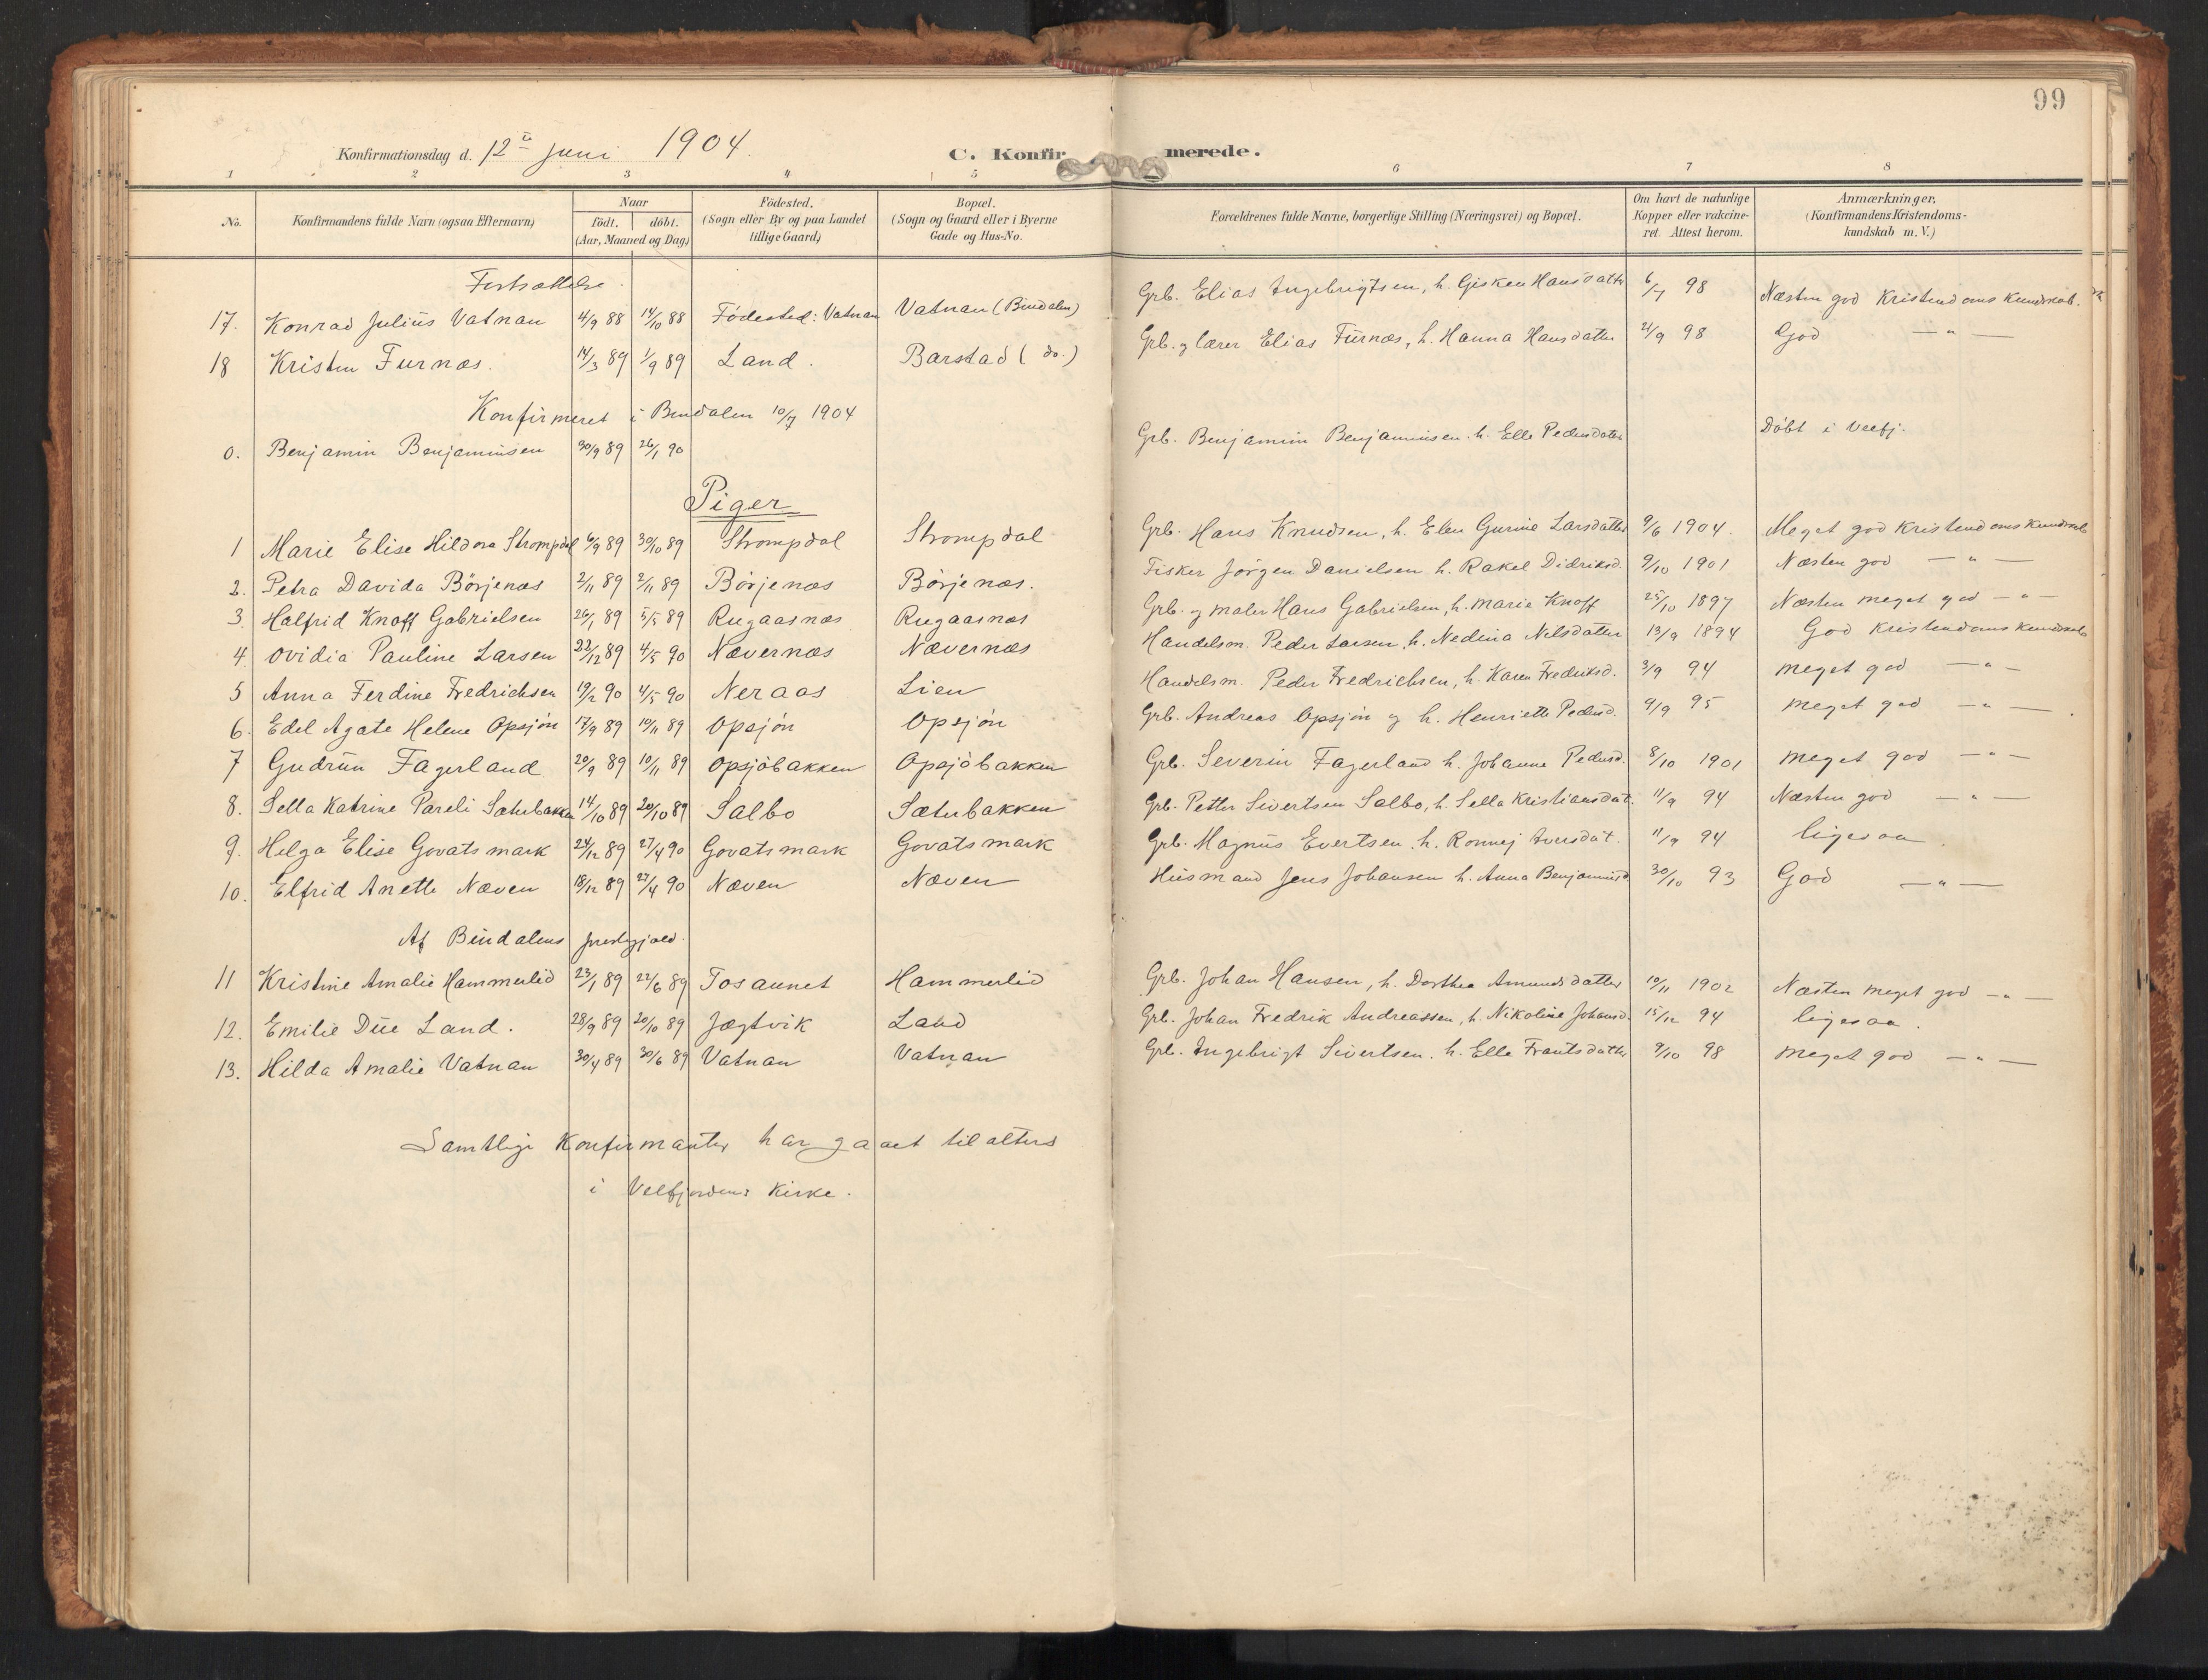 99
Konfirmationsdag d. 12te Juni 1904. C. Konfirmerede.
1 2 3 4 5 6 7 8
No. Konfirmandens fulde Navn (ogsaa Efternavn) Naar födt. döbt. (Aar, Maaned og Dag) Födested. (Sogn eller By og paa Landet tillige Gaard) Bopæl. (Sogn og Gaard eller i Byerne Gade og Hus-No. Forældrenes fulde Navne, borgerlige Stilling (Næringsvei) og Bopæl. Om havt de naturlige Kopper eller vakcineret. Attest herom. Anmærkninger. (Konfirmandens Kristendomskundskab m. V.)
Fortsættelse.
17. Konrad Julius Vatnan 4/9 88 14/10 88 Födested: Vatnan Vatnan (Bindalen) Grb. Elias Ingebrigtsen, h. Gisken Hansdatter 6/7 98 Næsten god Kristendoms Kundskab.
18 Kristen Furnæs. 14/3 89 1/9 89 Land. Barstad (do.) Grb. og lærer Elias Furnæs, h. Hanna Hansdatter 21/9 98 God — " —
Konfirmeret i Bindalen 10/7 1904
0. Benjamin Benjaminsen 30/9 89 26/1 90 Grb. Benjamin Benjaminsen. h. Elle Pedersdatter Döbt i Velfj.
Piger
1 Marie Elise Hildora Strompdal 6/9 89 30/10 89 Strompdal Strompdal Grb. Hans Knudsen, h. Elen Gurine Larsdatter 9/6 1904. Meget god Kristendoms Kundskab
2. Petra Davida Börjenæs 2/11 89 2/11 89 Börjenæs Börjenæs. Fisker Jörgen Danielsen h. Rakel Didriksd. 9/10 1901 Næsten god — " —
3. Halfrid Knoff Gabrielsen 26/1 89 5/5 89 Rugaasnæs Rugaasnæs Grb. og maler Hans Gabrielsen, h. Marie Knoff 25/10 1897 Næsten meget god — " —
4. Ovidia Pauline Larsen 22/12 89 4/5 90 Nævernæs Nævernæs Handelsm. Peder Larsen, h. Nedina Nilsdatter 13/9 1894 God Kristendoms Kundskab
5 Anna Ferdine Fredrichsen 19/2 90 4/5 90 Neraas Lien Handelsm. Peder Fredrichsen, h. Karen Fredriksd. 3/9 94 meget god — " —
6. Edel Agate Helene Opsjön 17/9 89 10/11 89 Opsjön Opsjön Grb. Andreas Opsjön og h. Henriette Pedersd. 9/9 95 meget god — " —
7 Gudrun Fagerland 20/9 89 10/11 89 Opsjöbakken Opsjöbakken Grb. Severin Fagerland h. Johanne Pedersd. 8/10 1901 meget god — " —
8. Sella Katrine Pareli Sæterbakken 14/10 89 20/10 89 Salbo Sæterbakken Grb. Petter Sivertsen Salbo, h. Sella Kristiansdat. 11/9 94 Næsten god — " —
9. Helga Elise Govatsmark 24/12 89 27/4 90 Govatsmark Govatsmark Grb. Magnus Evertsen. h. Ronnej Iversdat. 11/9 94 ligesaa.
10. Elfrid Anette Næven 18/12 89 27/4 90 Næven Næven Husmand Jens Johansen h. Anna Benjaminsd 30/10 93 God — " —
Af Bindalens prestegjæld.
11 Kristine Amalie Hammerlid 23/1 89 22/6 89 Tosaunet Hammerlid Grb. Johan Hansen, h. Dorthea Amundsdatter 10/11 1902 Næsten meget god — " —
12. Emilie Due Land. 28/9 89 20/10 89 Jægtvik Land Grb. Johan Fredrik Andreassen, h. Nikoline Johansd. 15/12 94 ligesaa.
13. Hilda Amalie Vatnan 30/4 89 30/6 89 Vatnan Vatnan Grb. Ingebrigt Sivertsen. h. Elle Frantsdatter 9/10 98 meget god — " —
Samtlige Konfirmanter har gaaet til alters
i Velfjordens Kirke.